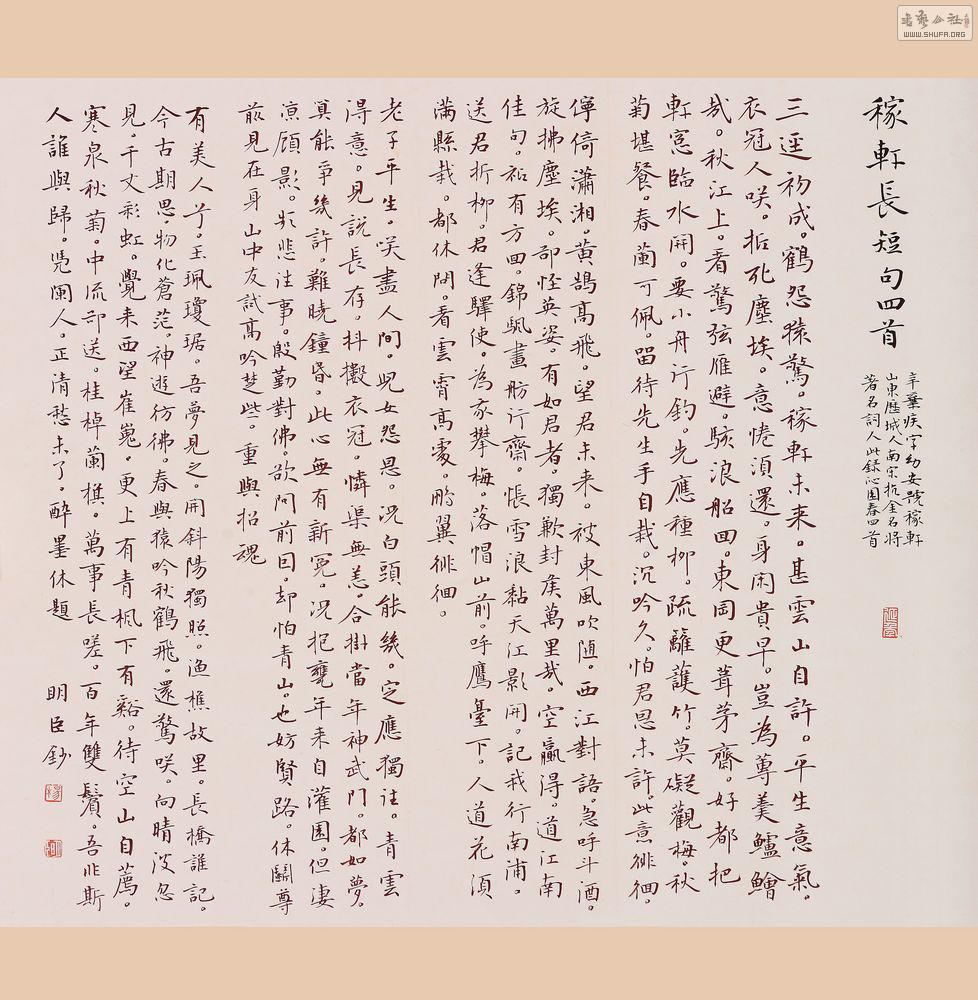 稼軒長短句四首
辛棄疾字幼安號稼軒
山東歷城人南宋抗金名將
著名詞人此錄沁園春四首
三逕初成。鶴怨猿驚。稼軒未来。甚雲山自許。平生意氣。
衣冠人咲。抵死塵埃。意倦須還。身闲貴早。豈為蓴羹鱸鱠
哉。秋江上。看驚弦雁避。駭浪船回。東岡更葺茅齋。好都把
軒窓臨水開。要小舟行釣。先應種柳。疏籬護竹。莫礙觀梅。秋
菊堪餐。春蘭可佩。留待先生手自栽。沉吟久。怕君恩未許。此意徘徊。
佇倚瀟湘。黄鵠高飛。望君未来。被東風吹堕。西江對語。急呼斗酒。
旋拂塵埃。却怪英姿。有如君者。獨歉封侯萬里哉。空贏得。道江南
佳句。祗有方回。錦颿畫舫行齋。悵雪浪黏天江影開。記我行南浦。
送君折柳。君逢驛使。為我攀梅。落帽山前。呼鷹臺下。人道花須
满縣栽。都休問。看雲霄高處。鵬翼徘徊。
老子平生。咲盡人间。兒女怨恩。况白頭能幾。定應獨往。青雲
得意。見說長存。抖擻衣冠。憐渠無恙。合掛當年神武門。都如夢。
算能爭幾許。難曉鐘昏。此心無有新冤。况抱甕年来自灌園。但凄
凉顧影。频悲往事。殷勤對佛。欲问前因。却怕青山。也妨賢路。休鬭尊
前見在身。山中友。試高吟楚些。重與招魂
有美人兮。玉珮瓊琚。吾夢見之。问斜陽獨照。渔樵故里。長橋誰記。
今古期思。物化蒼茫。神遊彷彿。春與猿吟秋鶴飛。還驚咲。向晴波忽
見。千丈彩虹。覺来西望崔嵬。更上有青楓下有谿。待空山自薦。
寒泉秋菊。中流却送。桂棹蘭旗。萬事長嗟。百年雙鬢。吾非斯
人誰與歸。凭闌人。正清愁未了。醉墨休題
明臣鈔
WWW.SHUFA.ORG